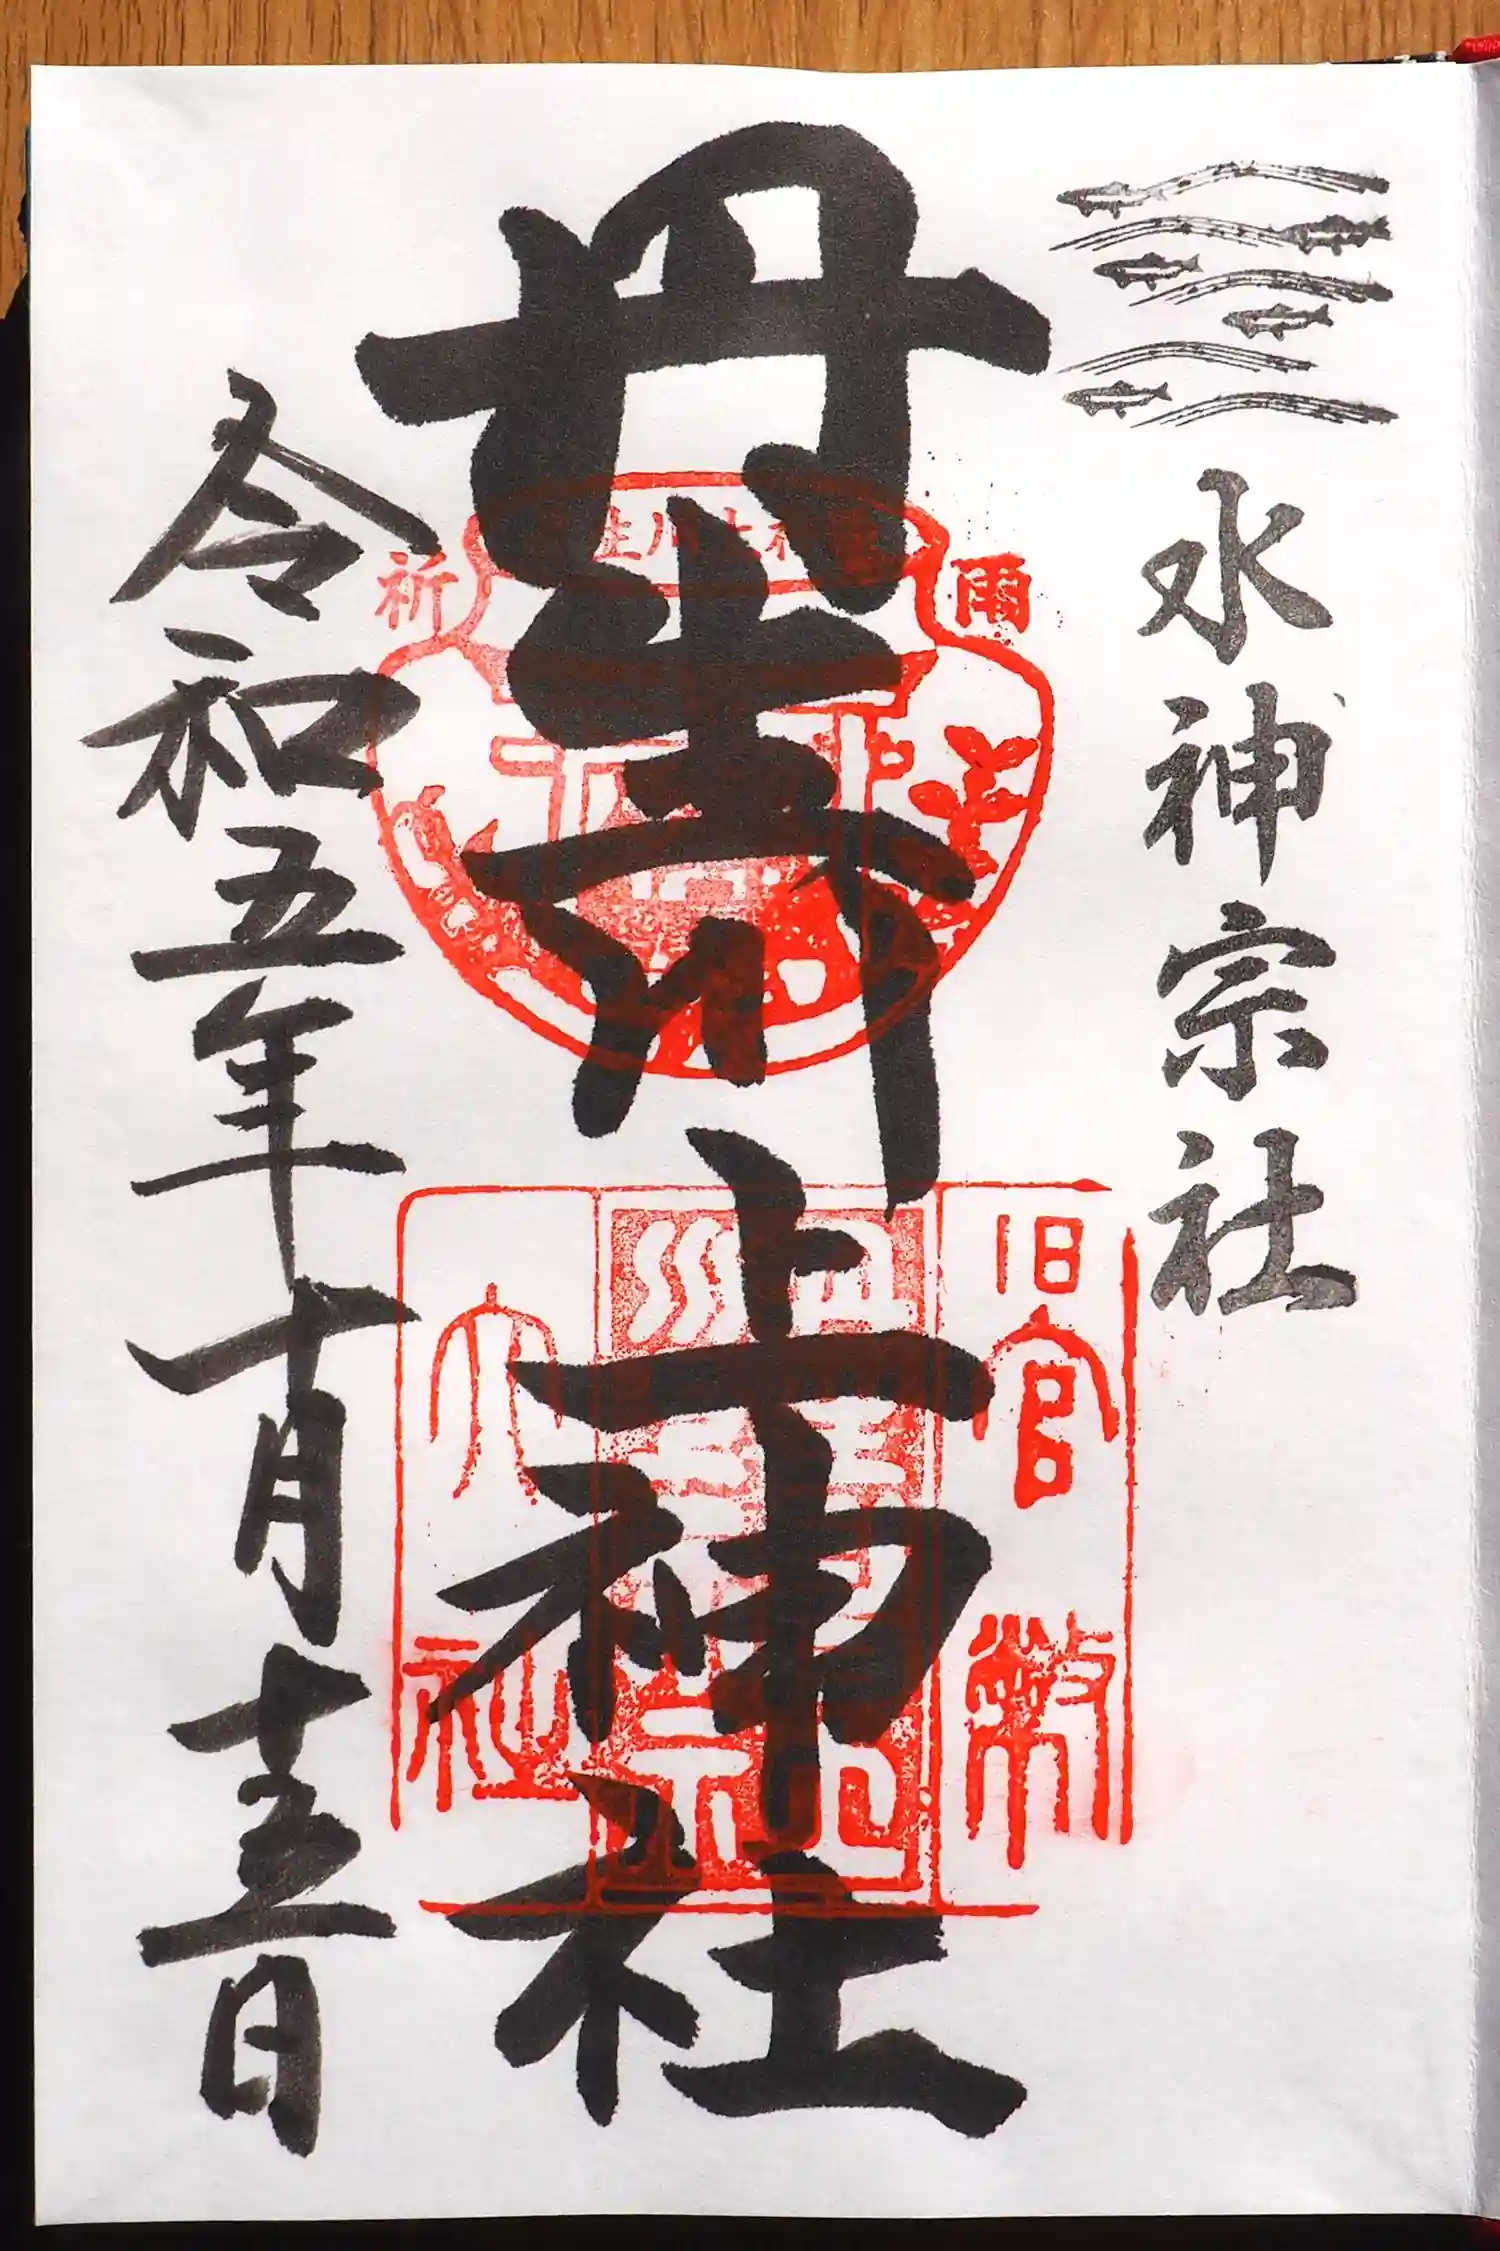 水神宗社
丹生川上神社
祈
雨
旧官幣
大社
令和五年十月十五日